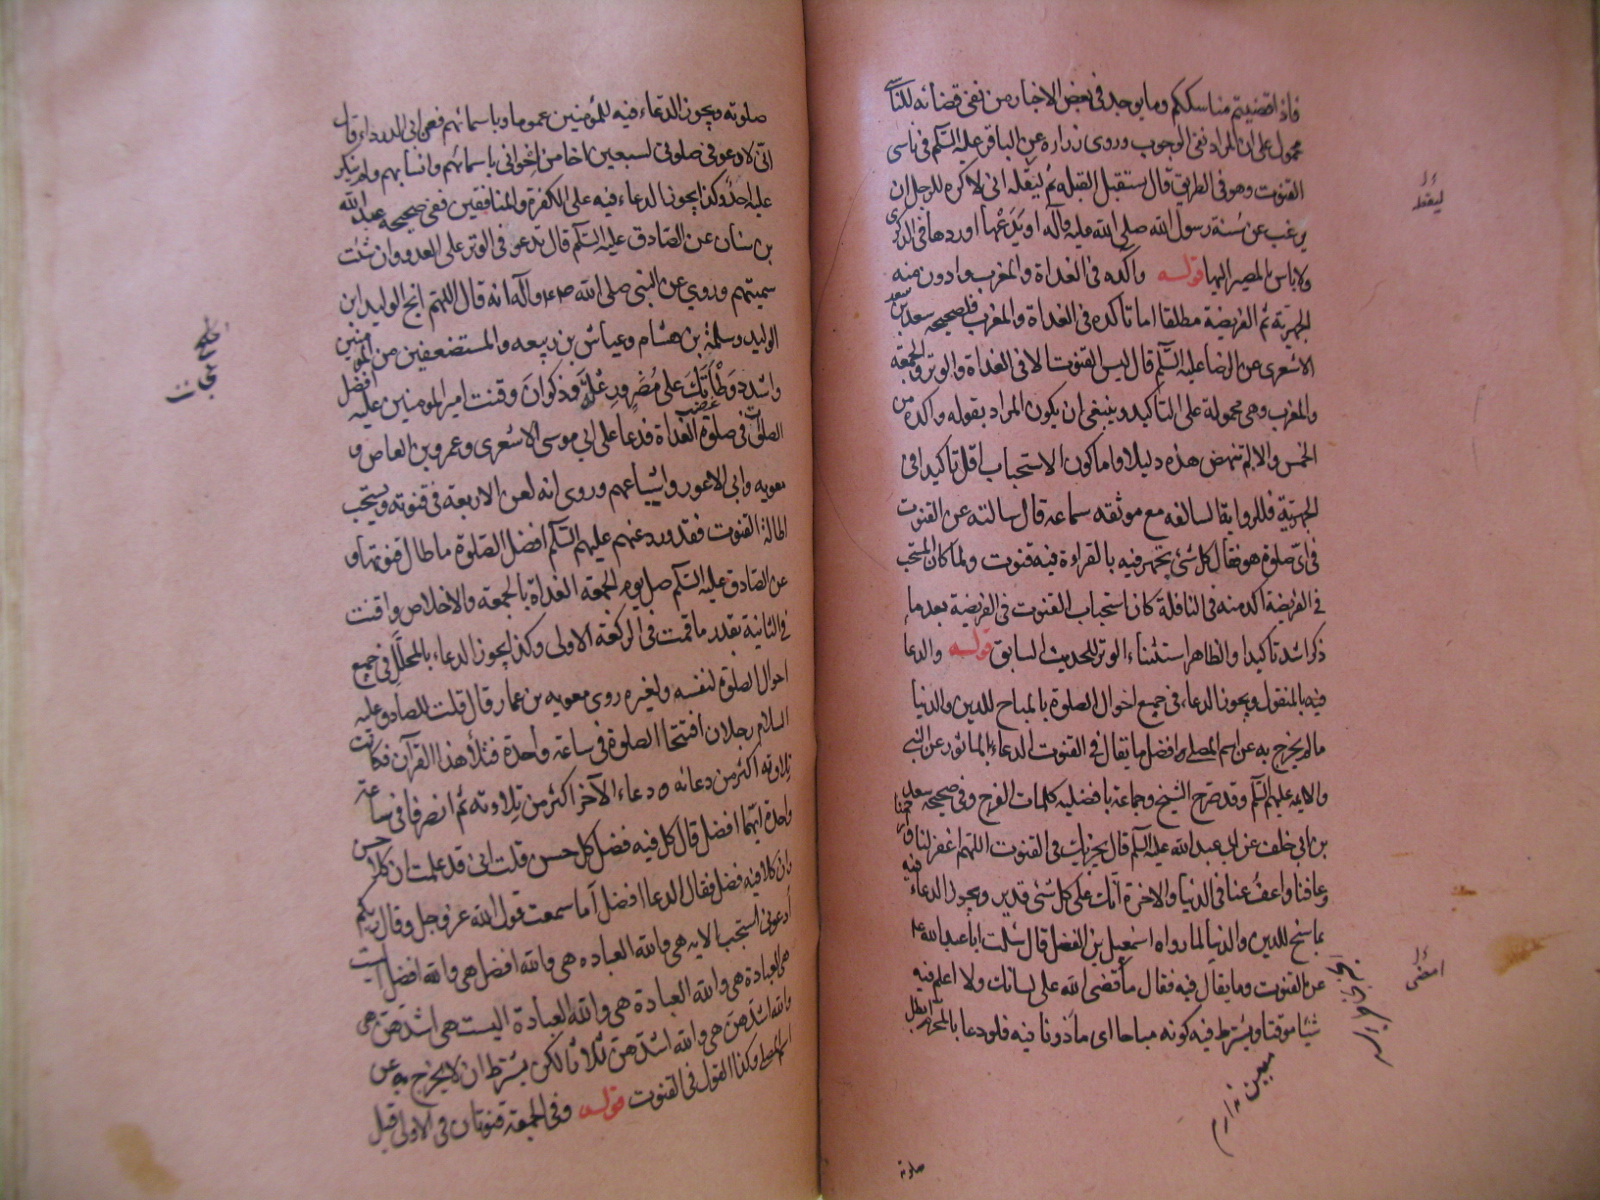 فاذا قضيتم مناسككم وما يوجد فى بعض الاخبار من نفى قضائه للناسى
محمول على ان المراد نفى الوجوب وروى زراره عن الباقر عليه السّلم فى ناسى
القنوت وهو فى الطريق قال يستقبل القبله ثم ليقله انى لاكره للرجل ان
يرغب عن سنة رسول الله صلى الله عليه وآله او يدعها اوردها فى الذكرى
ولا باس بالمصير اليها قوله واكده فى الغداة والمغرب وادون منه
الجهريّة ثم الفريضة مطلقا اما تأكده فى الغداة والمغرب فلصحيحه سعد بن سعد
الاشعرى عن الرضا عليه السّلم قال ليس القنوت الا فى الغداة والوتر والجمعة
والمغرب وهى محمولة على التأكيد وينبغى ان يكون المراد بقوله واكده من
الخمس والا لم تنهض هذه دليلا واما كون الاستحباب اقل تاكيدا فى
الجهريّة فللرواية السالفه مع موثقه سماعه قال سالته عن القنوت
فى اىّ صلوة هو فقال كل شئ يجهر فيه بالقراءة فيه قنوت ولما كان المستحب
فى الفريضة اكد منه فى النافلة كان استحباب القنوت فى الفريضة بعد ما
ذكر اشد تاكيدا والظاهر استثناء الوتر للحديث السابق قوله والدعا
فيه بالمنقول ويجوز الدعاء فى جميع احوال الصلوة بالمباح للدين والدنيا
ما لم يخرج به عن اسم المصلى وافضل ما يقال فى القنوت الدعاء بالماثور عن النبى
والائمه عليهم السّلم وقد صرح الشيخ وجماعة بافضليه كلمات الفرج وفى صحيحه سعد
بن ابى خلف عن ابى عبد الله عليه السّلم قال يجزيك فى القنوت اللهم اغفر لنا وارحمنا
وعافنا واعف عنا فى الدنيا والاخرة انّك على كل شئ قدير ويجوز الدعاء فيه
بما سنح للدين والدنيا لما رواه اسمعيل بن الفضل قال سئلت ابا عبد الله ع
عن القنوت وما يقال فيه فقال ما قضى الله على لسانك ولا اعلم فيه
شيئا موقتا ويشترط فيه كونه مباحا اى ماذونا فيه فلو دعا بالمحرم ابطل
صلوته
صلوته ويجوز الدّعاء فيه للمؤمنين عموما وباسمائهم فعن ابى الدرداء قال
انّى لادعو فى صلوتى لسبعين اخا من اخوانى باسمائهم وانسابهم ولم ينكر
عليه احد وكذا يجوز الدعاء فيه على الكفرة والمنافقين ففى صحيحه عبد الله
بن سنان عن الصّادق عليه السّلم قال تدعو فى الوتر على العدو وان شئت
سميتهم وروى عن النبى صلى الله عليه وآله انه قال اللهمّ انج الوليد ابن
الوليد وسلمة بن هشام وعياش بن ربيعه والمستضعفين من المؤمنين
واشدد وطأتك على مضر ورعل وذكوان وقنت امير المومنين عليه افضل
الصلوة فى صلوة الغداة فدعا على ابى موسى الاشعرى وعمرو بن العاص و
معويه وابى الاعور واشياعهم وروى انه لعن الاربعة فى قنوته ويستحب
اطالة القنوت فقد ورد عنهم عليهم السّلم افضل الصّلوة ما طال قنوتها و
عن الصّادق عليه السّلم صل يوم الجمعه الغداة بالجمعه والاخلاص واقنت
فى الثانية بقدر ما قمت فى الركعة الاولى وكذا يجوز الدعاء بالمحلّل فى جميع
احوال الصلوة لنفسه ولغيره روى معويه بن عمار قال قلت للصادق عليه
السلام رجلان افتتحا الصلوة فى ساعة واحدة فتلا هذا القرآن فكانت
تلاوته اكثر من دعائه ودعاء الآخر اكثر من تلاوته ثم انصرفا فى ساعة
واحدة ايّهما افضل قال كل فيه فضل كل حسن قلت انى قد علمت ان كلا حسن
وان كلا فيه فضل فقال الدعا افضل أما سمعت قول الله عز وجل وقال ربكم
أدعونى استجب الايه هى والله العباده هى والله افضل هى والله افضل اليست
هى العبادة هى والله العبادة هى والله العبادة اليست هى اشدّهن هى
والله اشدّهن هى والله اشدّهن ثلاثا لكن يشترط ان لا يخرج به عن
اسم المصلى وكذا القول فى القنوت قوله وفى الجمعة قنوتان فى الاولى قبل